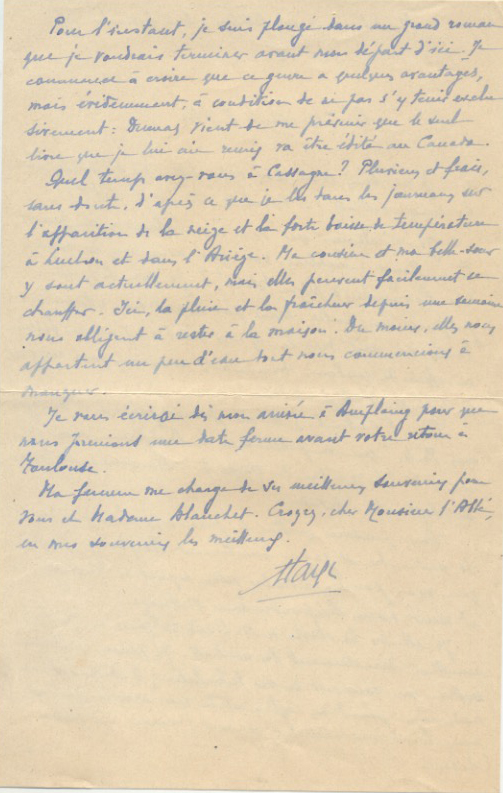 Pour l'instant, je suis plongé dans un grand roman
que je voudrais terminer avant mon départ d'ici. Je
commence à croire que ce genre a quelques avantages,
mais évidemment, à condition de ne pas s'y tenir exclu-
sivement : Dumas vient de me prévenir que le seul
livre que je lui aie remis va être édité au Canada.
Quel temps avez-vous à Cassagne ? Pluvieux et frais,
sans doute, d'après ce que je lis dans les journaux sur
l'apparition de la neige et la forte baisse de température
à Luchon et dans l'Ariège. Ma cousine et ma belle-sœur
y sont actuellement, mais elles peuvent facilement se
chauffer. Ici, la pluie et la fraîcheur depuis une semaine
nous obligent à rester à la maison. Du moins, elles nous
apportent un peu d'eau dont nous commencions à
manquer.
Je vous écrirai dès mon arrivée à pour que
nous prenions une date ferme avant votre retour à
Toulouse.
Ma femme me charge de ses meilleurs souvenirs pour
vous et Madame Blanchet. Croyez, cher Monsieur l'Abbé,
en mes souvenirs les meilleurs.